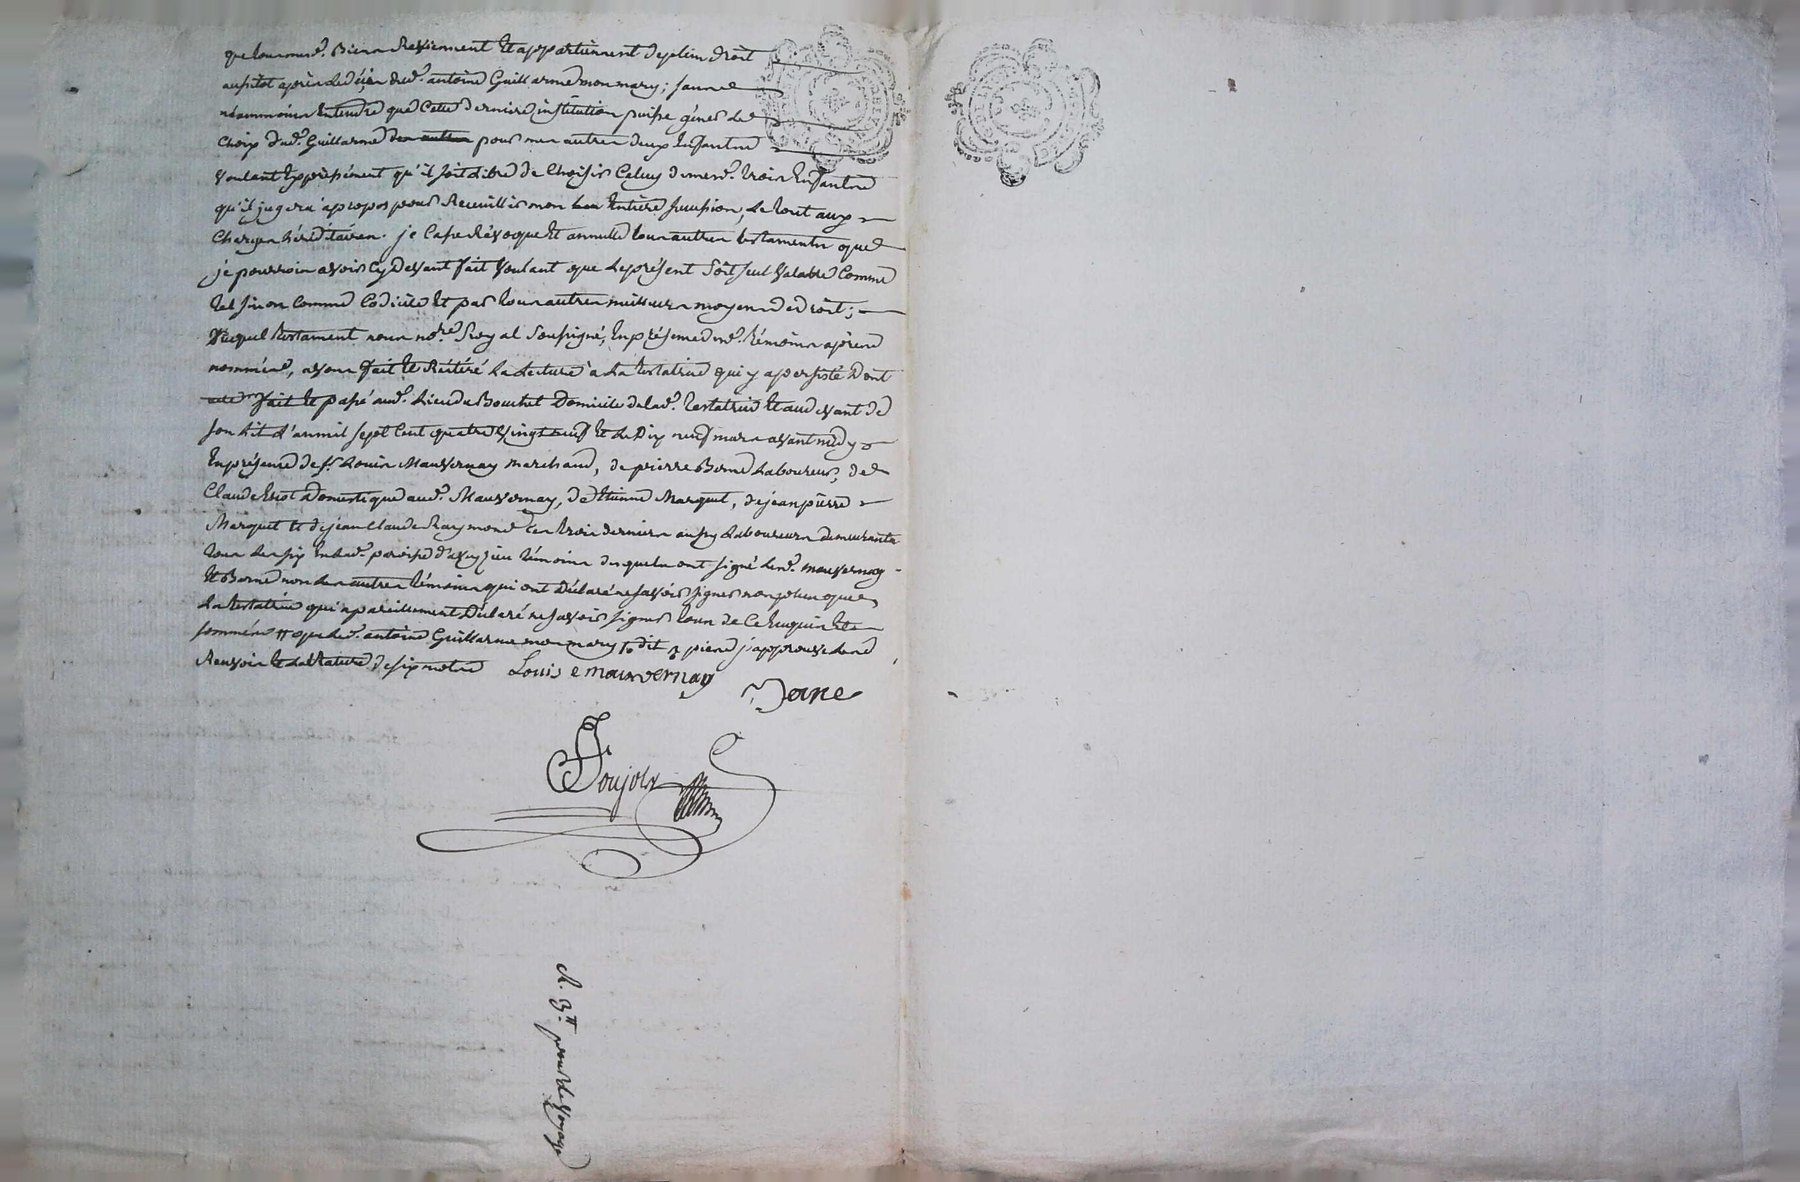 que tous mesd. Biens Reviennent Et appartiennent de plein droit
aussitot après le décès dud. antoine Guillarme mon mary; sans
néammoins Entendre que Cette derniere institution puisse gêner le
Choix dud. Guillarme pour mes autres deux Enfants
Voulant Expressément qu'il soit Libre de Choisir Celuy de mesd. trois Enfants
qu'il jugera apropos pour Recueillir mon Entiere succession, Le tout aux
Charges héréditaires. je Casse Révoque Et annulle tous autres testaments que
je pourrois avoir Cy Devant fait Voulant que Le présent Soit seul Valable Comme
tel sinon Comme Codicile Et par tous autres meilleurs moyens de droit;
Duquel testament nous no.re Royal Soussigné, En présence des témoins après
nommés, avons fait Et Réitéré La Lecture à La testatrice qui y a persisté Dont
acte fait Et passé aud. Lieu du Bouchet Domicile de lad. testatrice Et au devant de
son Lit L'an mil sept Cent quatre Vingt neuf Et Le Dix neuf mars avant midy
En présence de s.r Louis Mauvernay Marchand, de pierre Borne Laboureur, de
Claude domestique aud. Mauvernay, de Etienne Marquet, de jean pierre
Marquet Et de jean Claude Raymond Ces trois derniers aussy Laboureurs demeurants
tous Les six En lad. paroisse d'aveyzieu témoins desquels ont signé Lesd. Mauvernay
Et Borne non Les autres témoins qui ont Déclaré ne savoir signer non plus que
La testatrice qui a pareillement Déclaré ne savoir signer tous de Ce Enquis Et
sommés # que led. antoine Guillarme mon mary dit pierre j'approuve Led.
Renvoir Et La Rature de six mots
Louis e mauvernay
Borne
Poujols
R. 3.# pour le Voyage